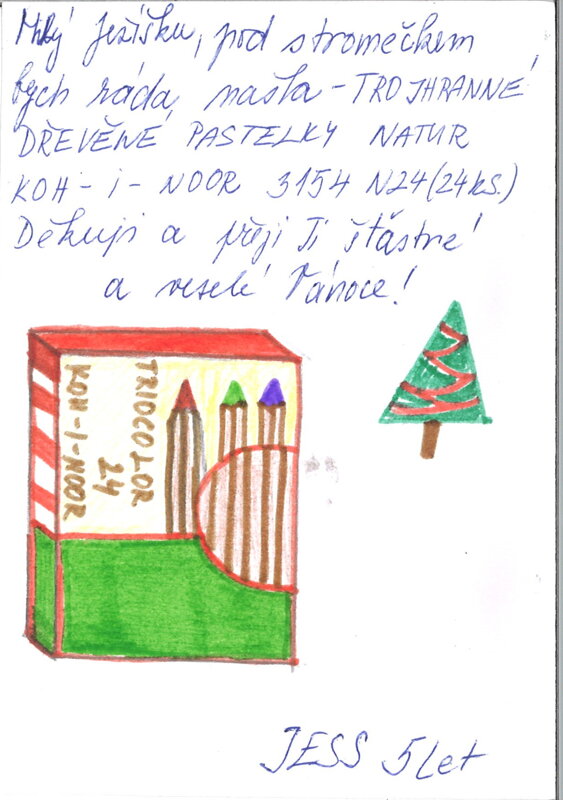 Milý Ježíšku, pod stromečkem
bych ráda našla - TROJHRANNÉ
DŘEVĚNÉ PASTELKY NATUR
KOH - I - NOOR 3154 N24 (24 ks.)
Děkuji a přeji Ti šťastné
a veselé Vánoce!
TRIOCOLOR
24
KOH-I-NOOR
JESS 5 let